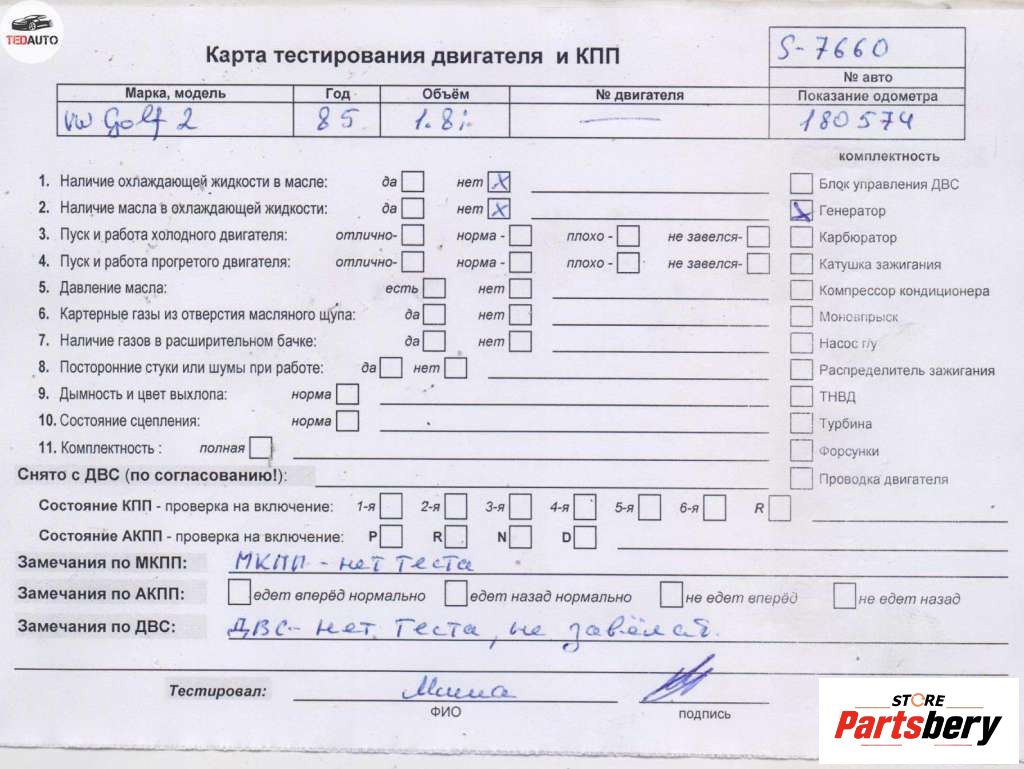 TEDAUTO
Карта тестирования двигателя и КПП
S-7660
№ авто
Марка, модель Год Объём № двигателя Показание одометра
VW Golf 2 85 1.8i — 180574
комплектность
1. Наличие охлаждающей жидкости в масле: да нет X
Блок управления ДВС
2. Наличие масла в охлаждающей жидкости: да нет X
X Генератор
3. Пуск и работа холодного двигателя: отлично- норма - плохо - не завелся-
Карбюратор
4. Пуск и работа прогретого двигателя: отлично- норма - плохо - не завелся-
Катушка зажигания
5. Давление масла: есть нет
Компрессор кондиционера
6. Картерные газы из отверстия масляного щупа: да нет
Моновпрыск
7. Наличие газов в расширительном бачке: да нет
Насос г/у
8. Посторонние стуки или шумы при работе: да нет
Распределитель зажигания
9. Дымность и цвет выхлопа: норма
ТНВД
10. Состояние сцепления: норма
Турбина
11. Комплектность : полная
Форсунки
Снято с ДВС (по согласованию!):
Проводка двигателя
Состояние КПП - проверка на включение: 1-я 2-я 3-я 4-я 5-я 6-я R
Состояние АКПП - проверка на включение: P R N D
Замечания по МКПП: МКПП - нет теста
Замечания по АКПП: едет вперёд нормально едет назад нормально не едет вперёд не едет назад
Замечания по ДВС: ДВС - нет теста, не завёлся.
Тестировал: Миша
ФИО подпись
STORE
Partsbery